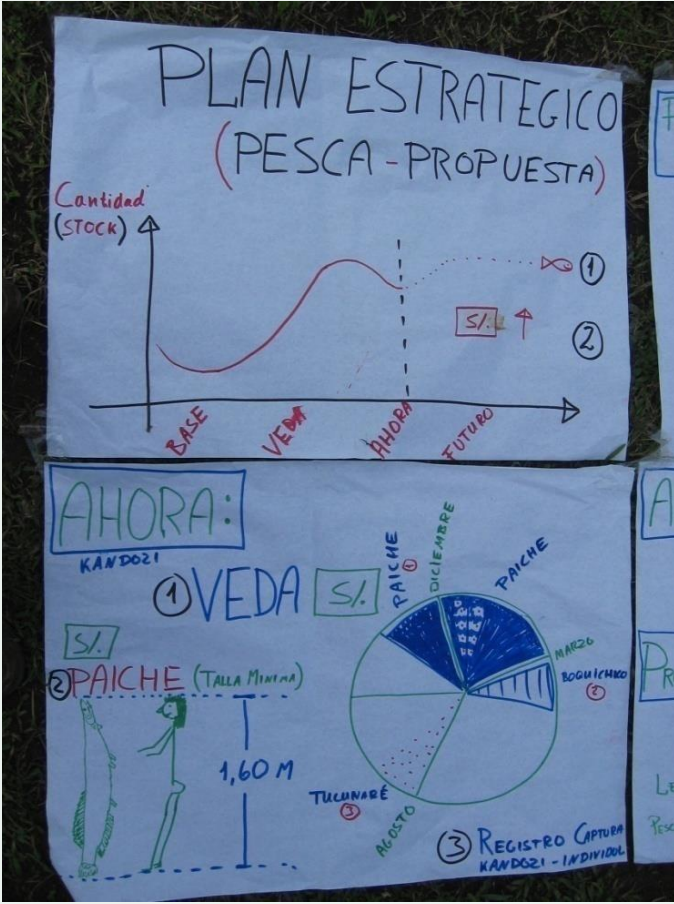 PLAN ESTRATEGICO
(PESCA-PROPUESTA)
Cantidad
(STOCK)
1
S/.
2
BASE
VEDA
AHORA
FUTURO
AHORA:
KANDOZI
1 VEDA S/.
S/.
2 PAICHE (TALLA MINIMA)
1,60 M
PAICHE
1
DICIEMBRE
PAICHE
MARZO
BOQUICHICO
2
TUCUNARÉ
3
AGOSTO
3 REGISTRO CAPTURA
KANDOZI - INDIVIDUL